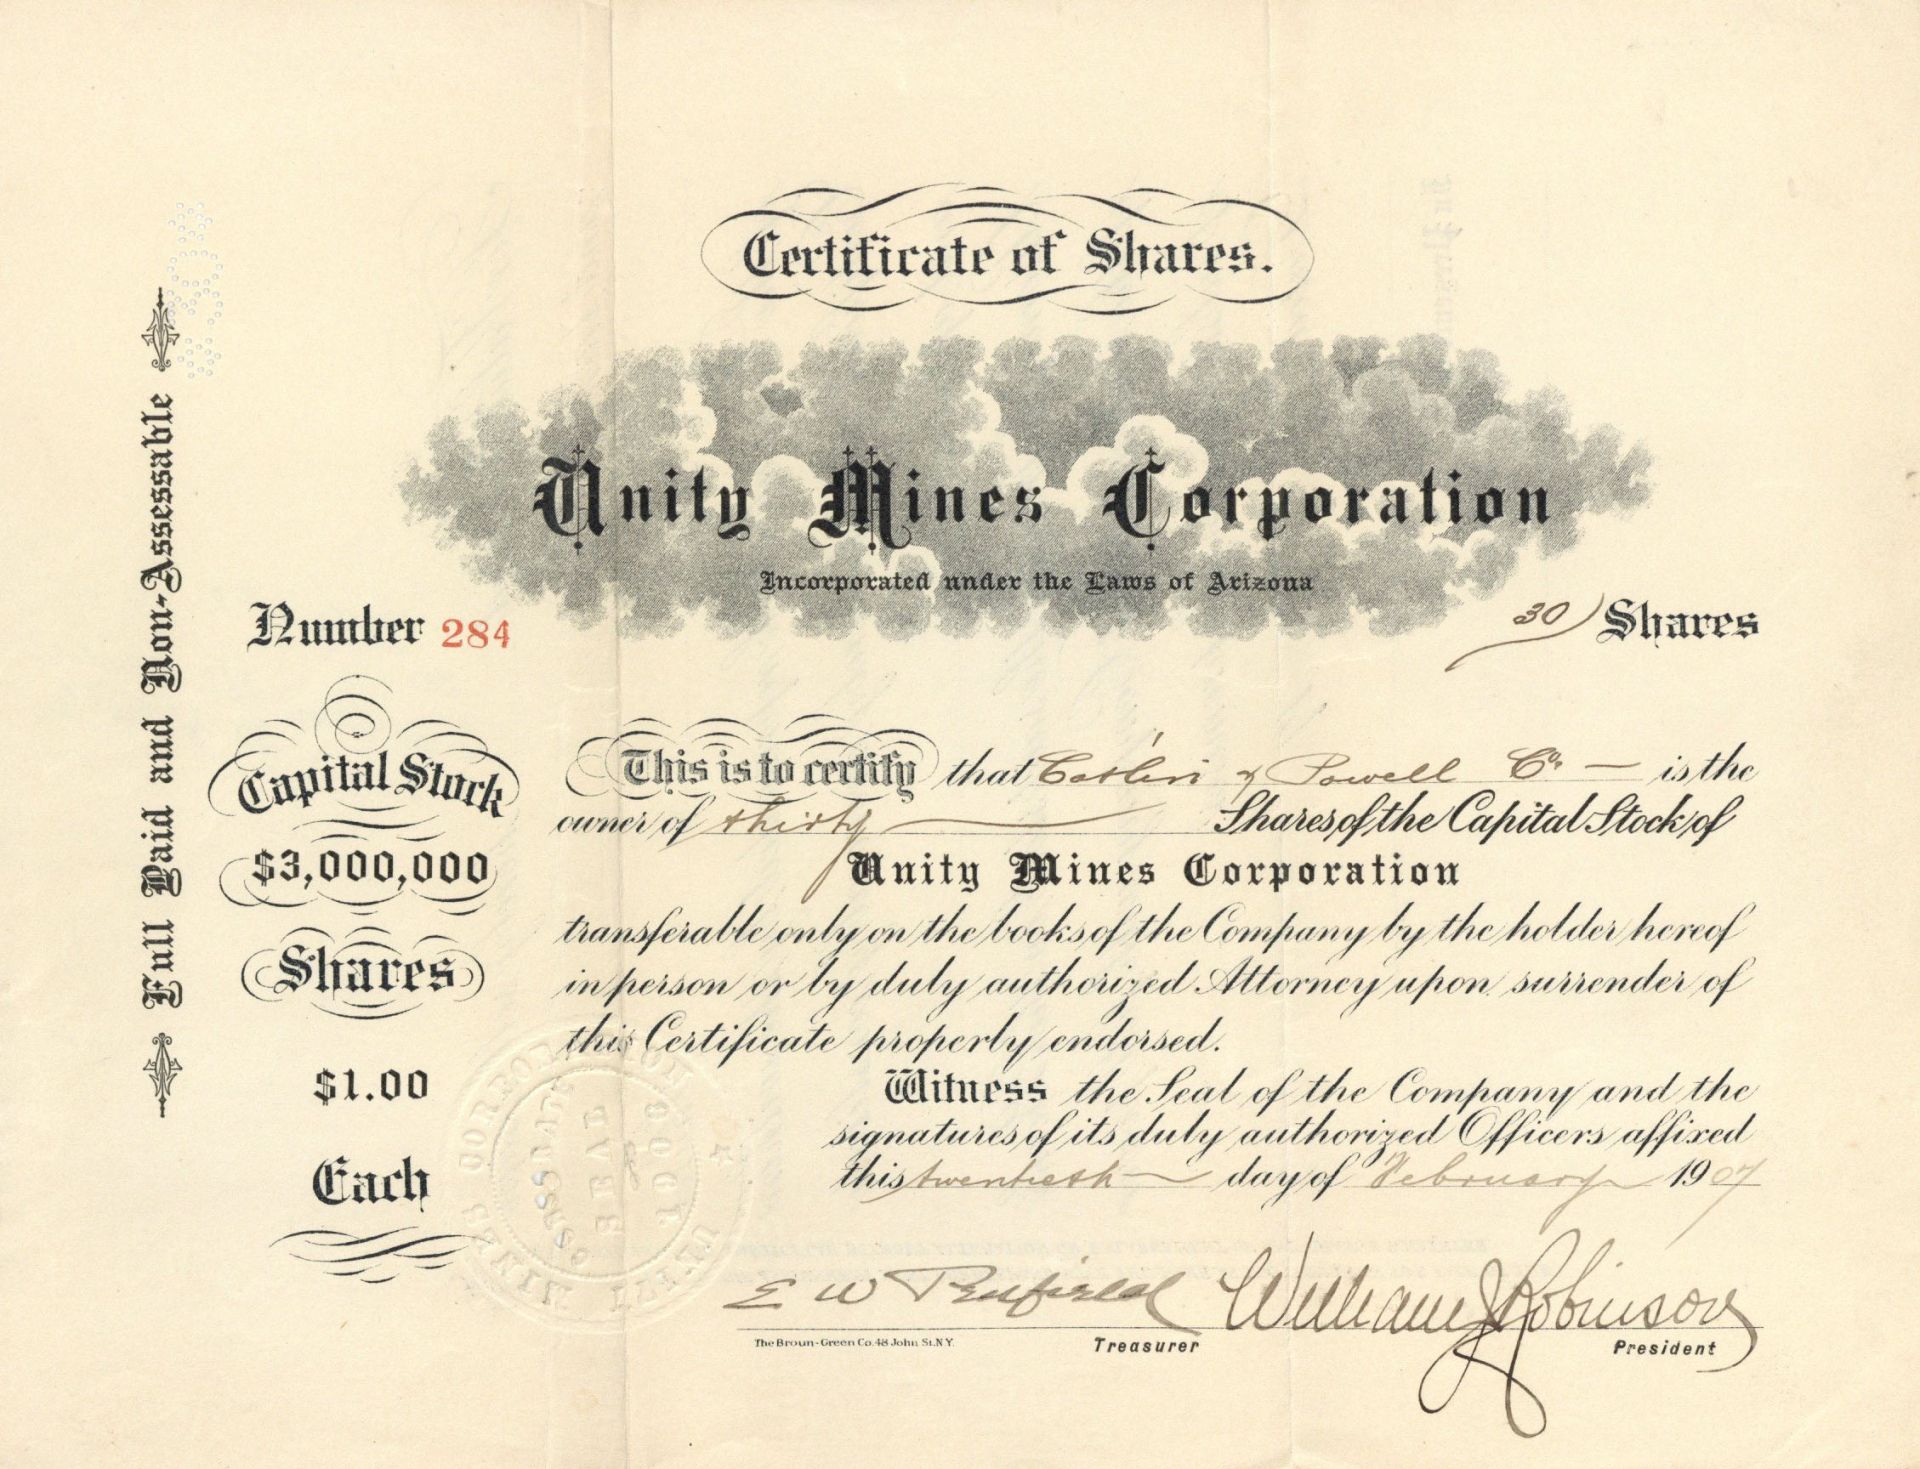 Certificate of Shares.
Unity Mines Corporation
Incorporated under the Laws of Arizona
Full Paid and Non-Assessable
Number 284
30 Shares
Capital Stock
$3,000,000
Shares
$1.00
Each
This is to certify that & Powell Co. is the
owner of thirty Shares of the Capital Stock of
Unity Mines Corporation
transferable only on the books of the Company by the holder hereof
in person or by duly authorized Attorney upon surrender of
this Certificate properly endorsed.
Witness the Seal of the Company and the
signatures of its duly authorized Officers affixed
this twentieth day of February 1907
E W Penfield William J Robinson
The Broun-Green Co. 48 John St. N.Y. Treasurer President